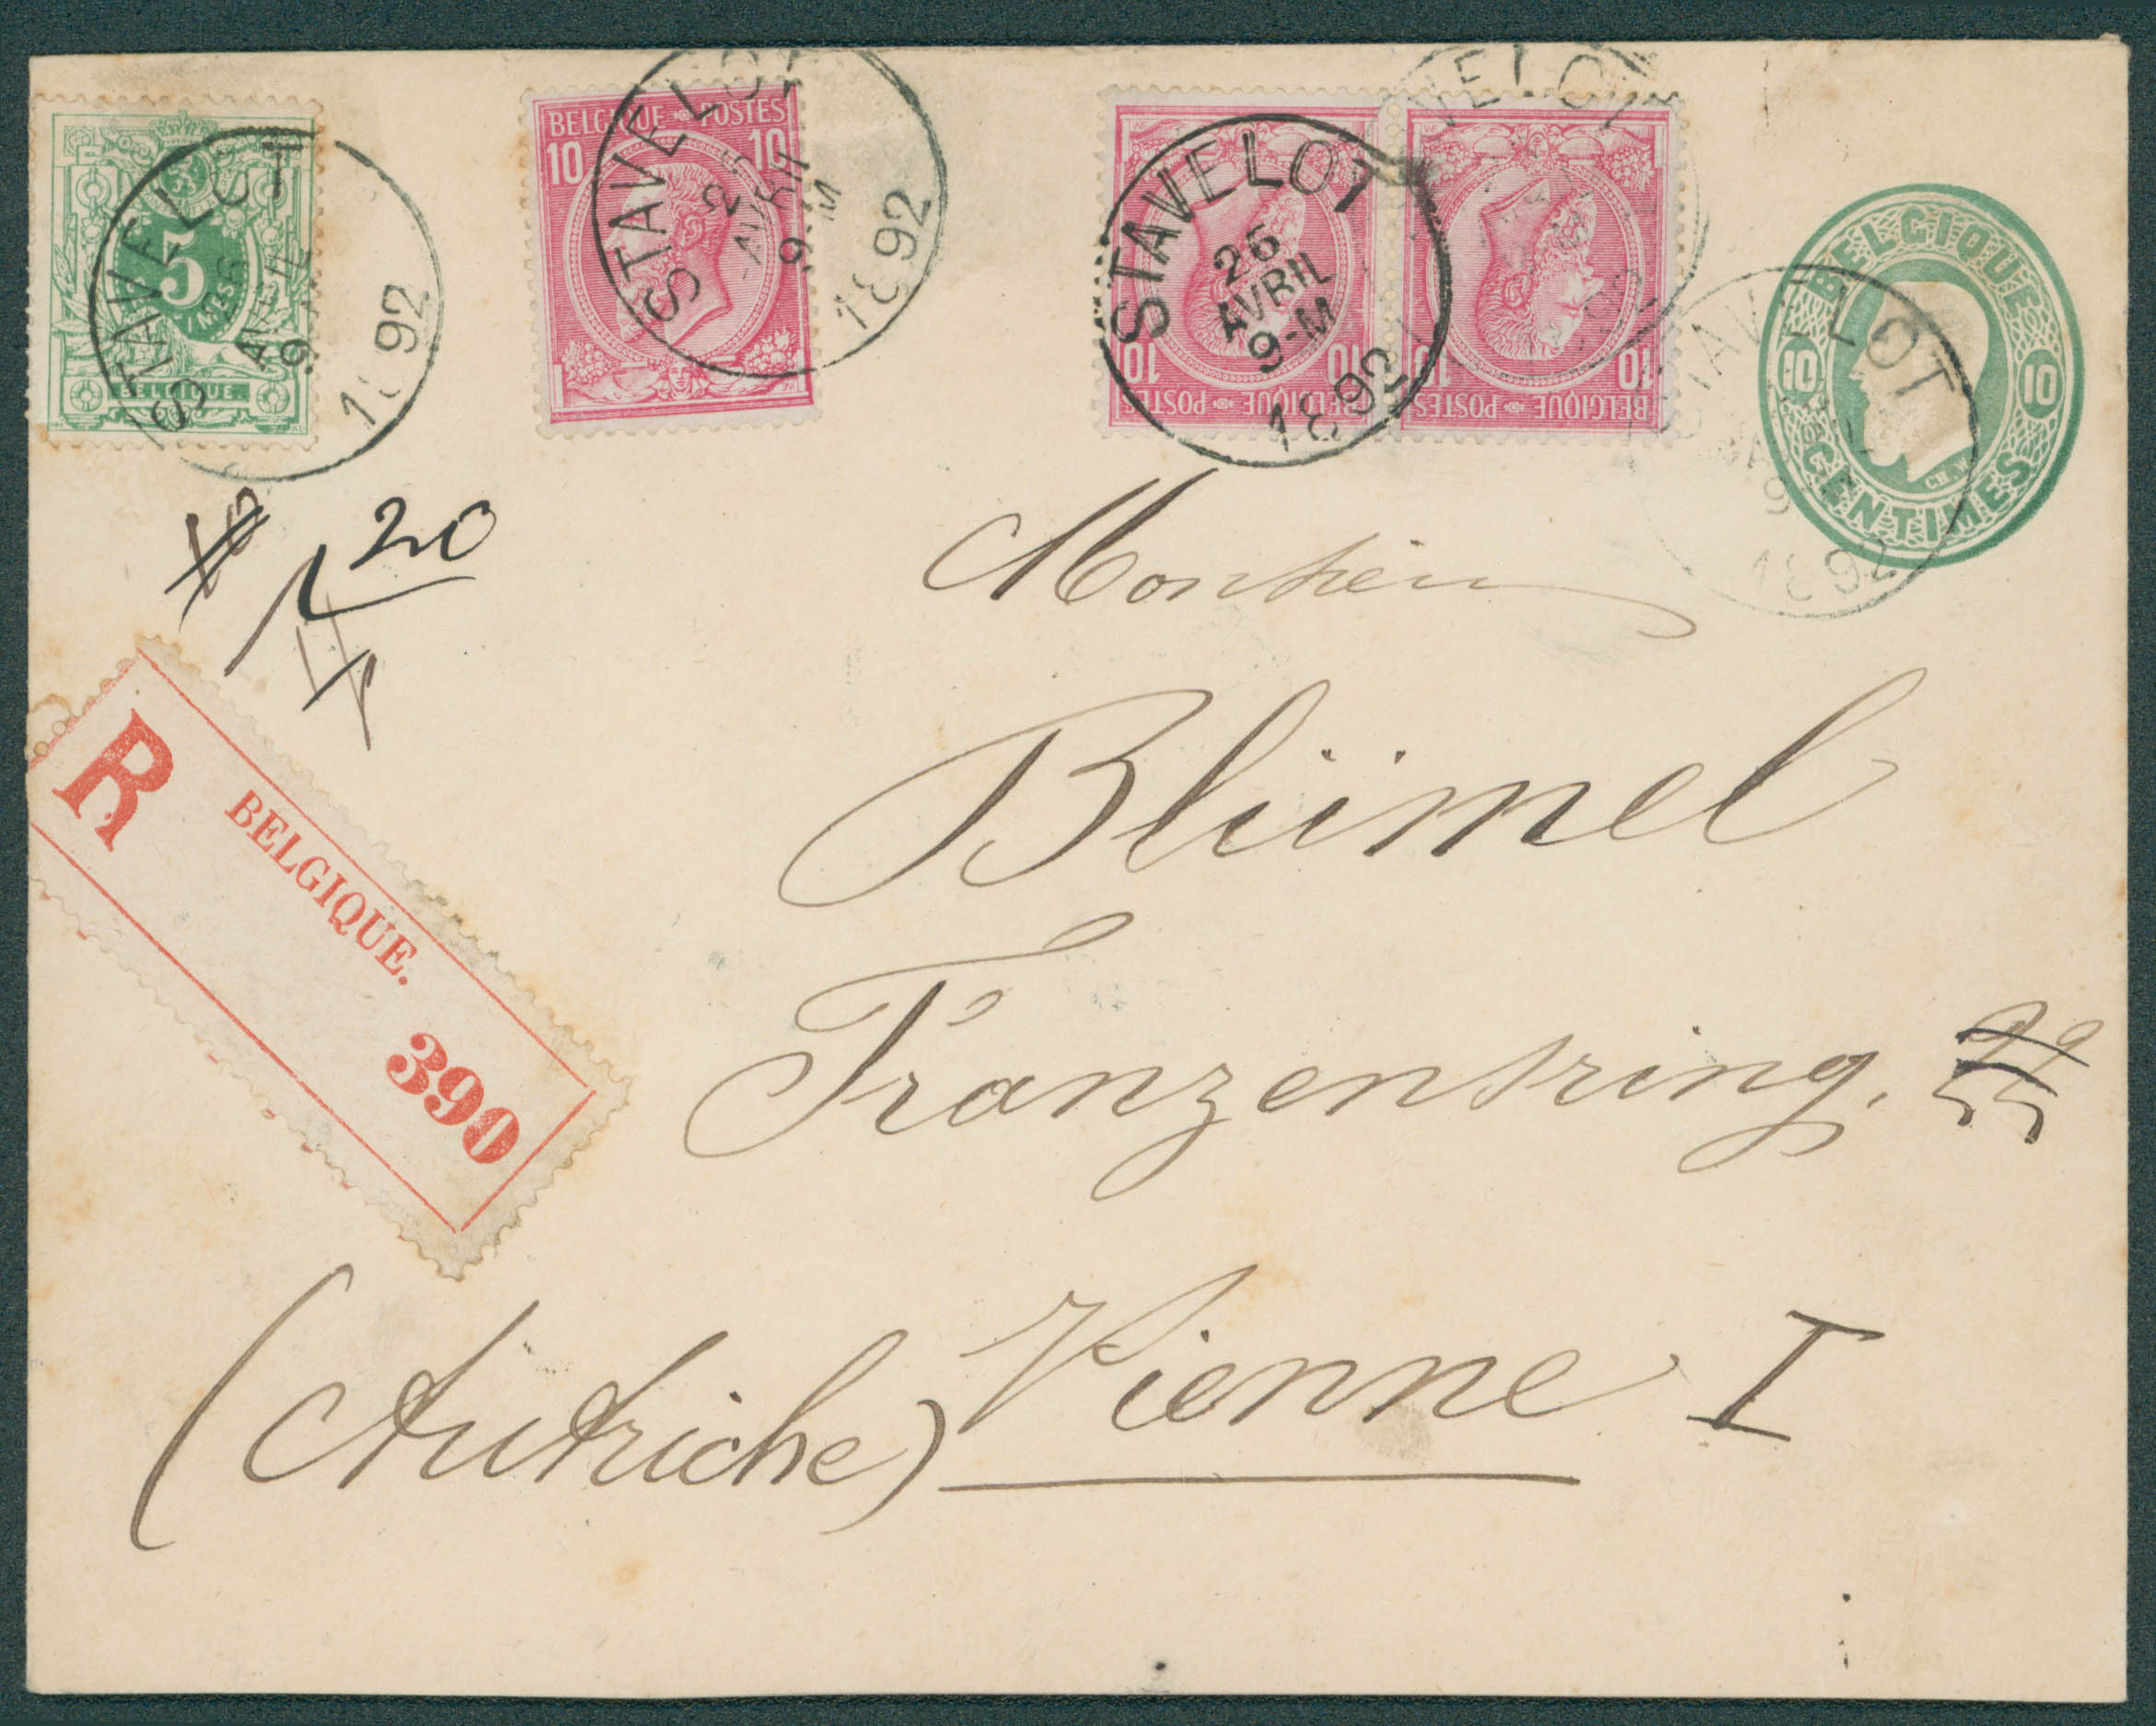 STAVELOT
26
AVRIL
9
1892
5
CENTIMES
BELGIQUE.
BELGIQUE POSTES
10 10
STAVELOT
2
AVRIL
9 M
1892
STAVELOT
26
AVRIL
9-M
1892
10 10
BELGIQUE POSTES
10 10
BELGIQUE POSTES
VELOT
BELGIQUE
10 10
CENTIMES
STAVELOT
9
1892
20
Monsieur
Blümel
R
BELGIQUE.
390
Franzensring.
(Autriche) Vienne I